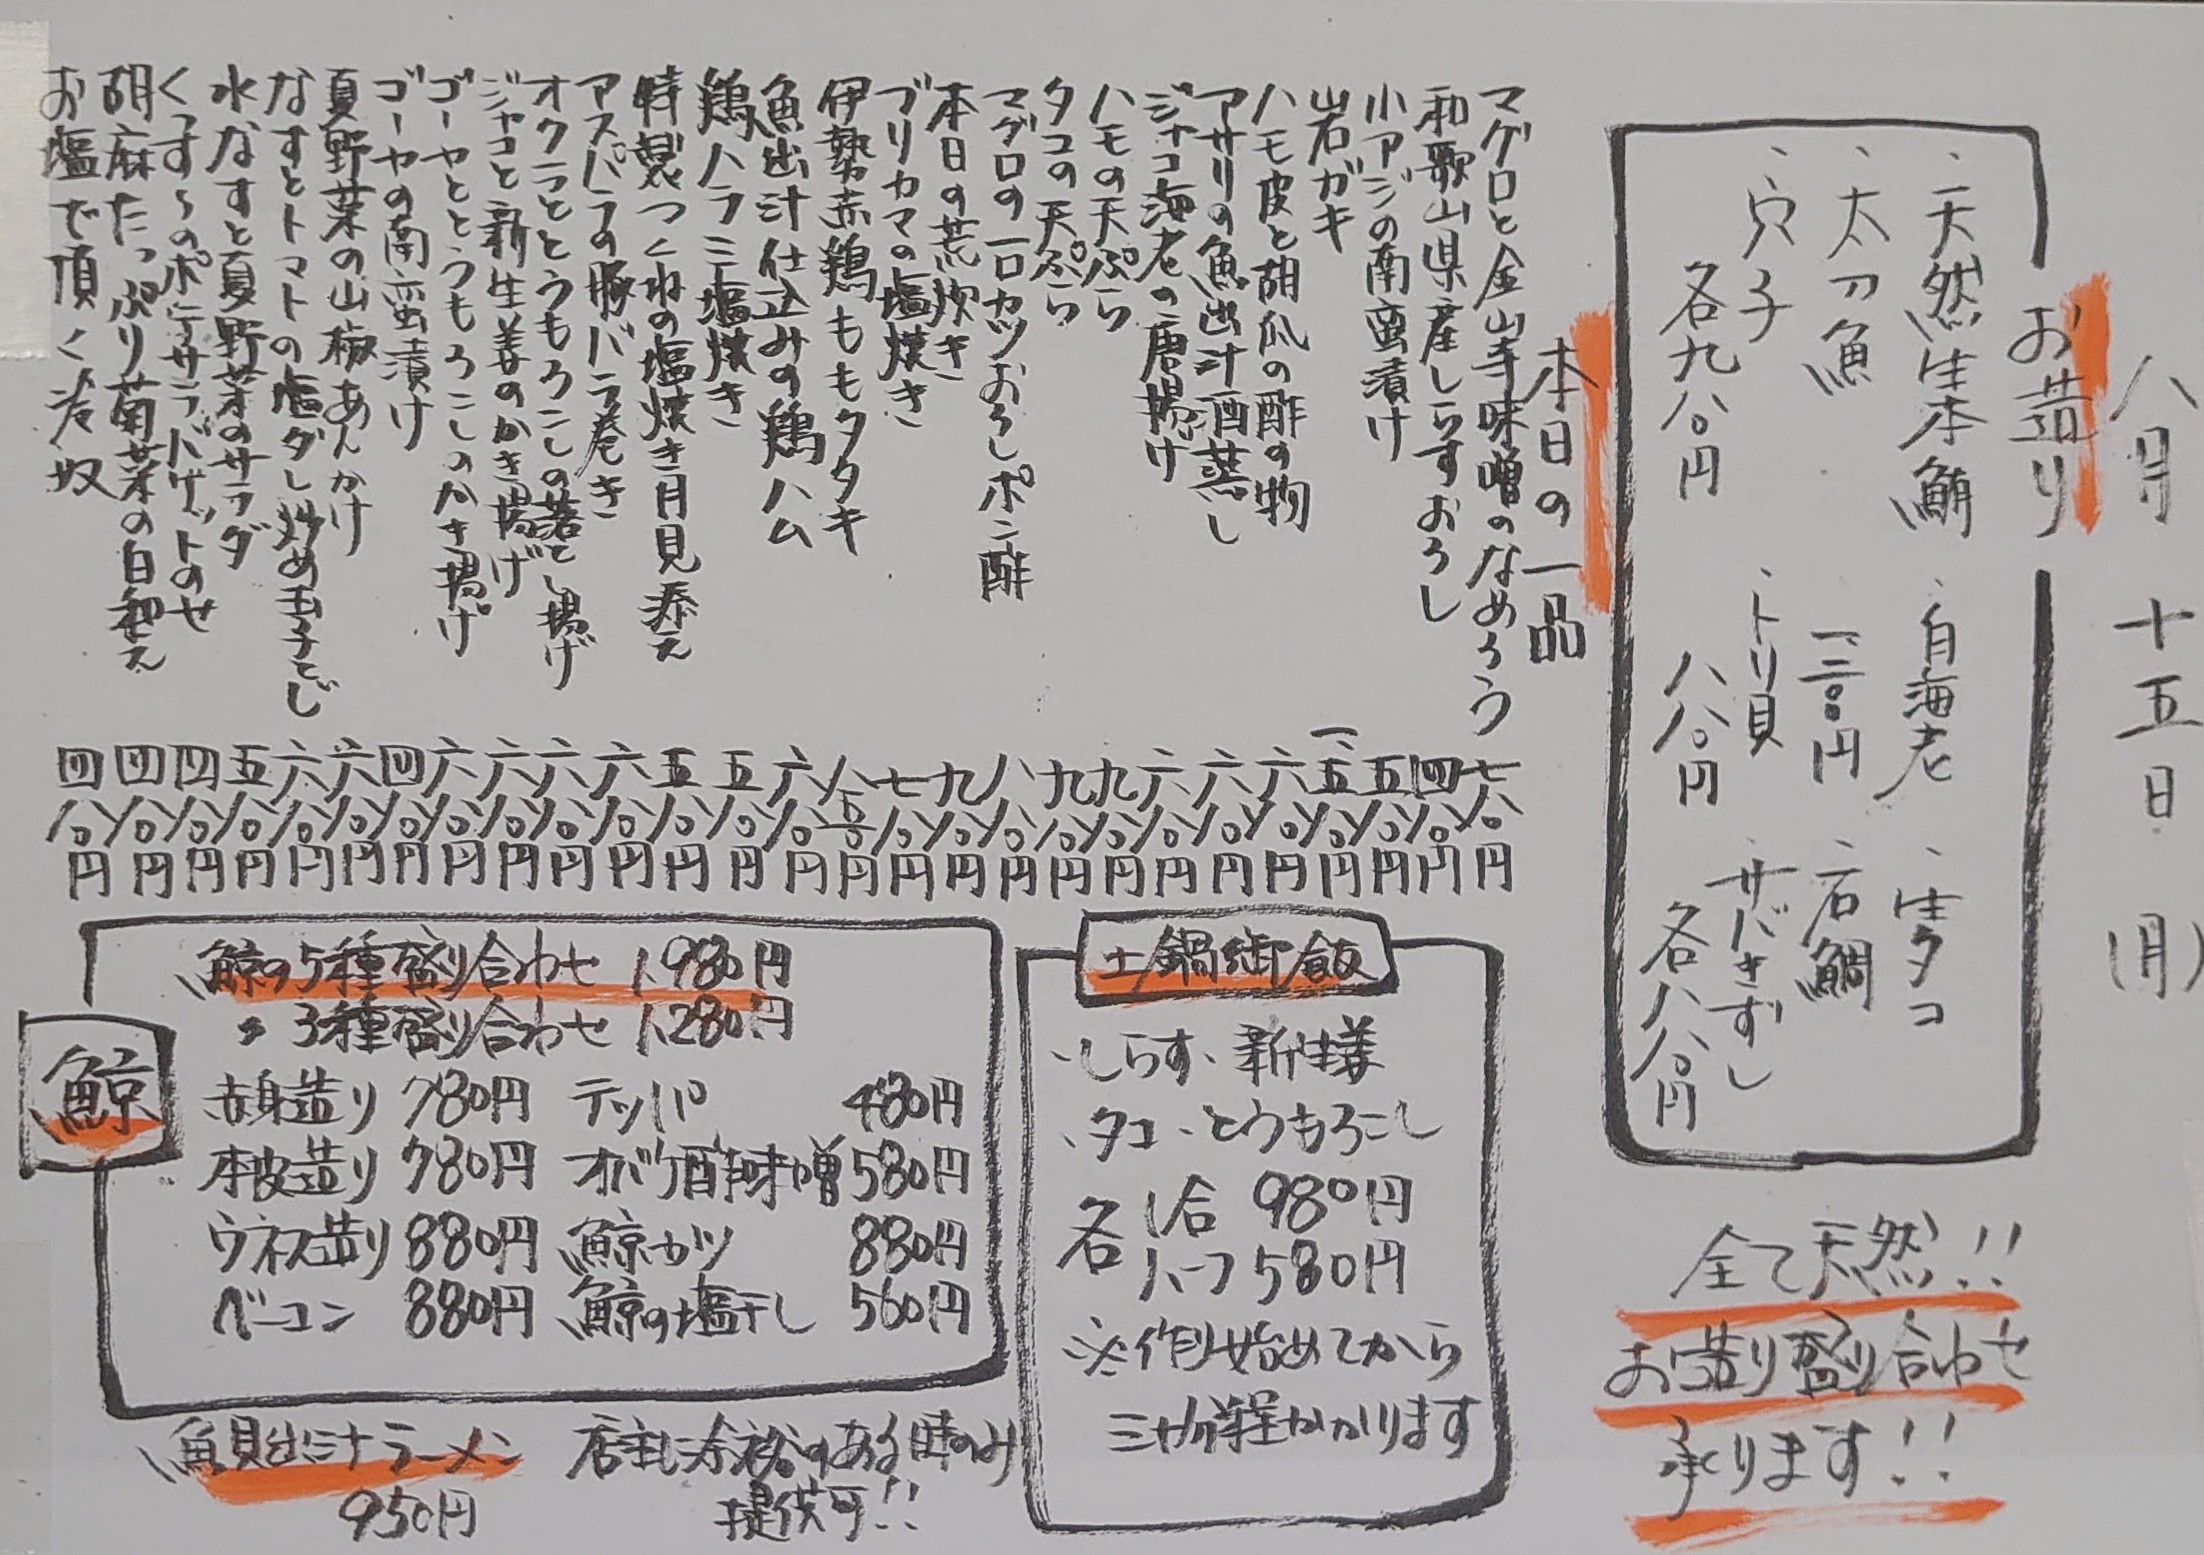 八月十五日(月)
お造り
、天然生本鮪
、太刀魚
、穴子
各九八〇円
、白海老
一、二八〇円
、トリ貝
八八〇円
、生タコ
、石鯛
、サバきずし
各八八〇円
全て天然!!
お造り盛り合わせ
承ります!!
本日の一品
マグロと金山寺味噌のなめろう 七八〇円
和歌山県産しらすおろし 四八〇円
小アジの南蛮漬け 五八〇円
岩ガキ 一、五八〇円
ハモ皮と胡瓜の酢の物 六八〇円
アサリの魚出汁酒蒸し 六八〇円
ジャコ海老の唐揚げ 六八〇円
ハモの天ぷら 九八〇円
タコの天ぷら 九八〇円
マグロの一口カツおろしポン酢 八八〇円
本日の荒炊き 九八〇円
ブリカマの塩焼き 七八〇円
伊勢赤鶏ももタタキ 八五〇円
魚出汁仕込みの鶏ハム 六八〇円
鶏ハラミ塩焼き 五八〇円
特製つくねの塩焼き月見添え 五八〇円
アスパラの豚バラ巻き 六八〇円
オクラととうもろこしの落とし揚げ 六八〇円
ジャコと新生姜のかき揚げ 六八〇円
ゴーヤととうもろこしのかき揚げ 六八〇円
ゴーヤの南蛮漬け 四八〇円
夏野菜の山椒あんかけ 六八〇円
なすとトマトの塩ダレ炒め玉子とじ 六八〇円
水なすと夏野菜のサラダ 五八〇円
くっす〜のポテサラバゲットのせ 四八〇円
胡麻たっぷり菊菜の白和え 四八〇円
お塩で頂く冷奴 四八〇円
土鍋御飯
、しらす、新生姜
、タコ、とうもろこし
各 1合 980円
ハーフ 580円
※作り始めてから
三十分程かかります
鯨
鯨の5種盛り合わせ 1,980円
〃 3種盛り合わせ 1,280円
赤身造り 780円 テッパ 480円
本皮造り 780円 オバケ酢味噌 580円
ウネス造り 880円 鯨カツ 880円
ベーコン 880円 鯨の塩干し 560円
魚貝出汁ラーメン
950円
店主に余裕のある時のみ
提供可!!